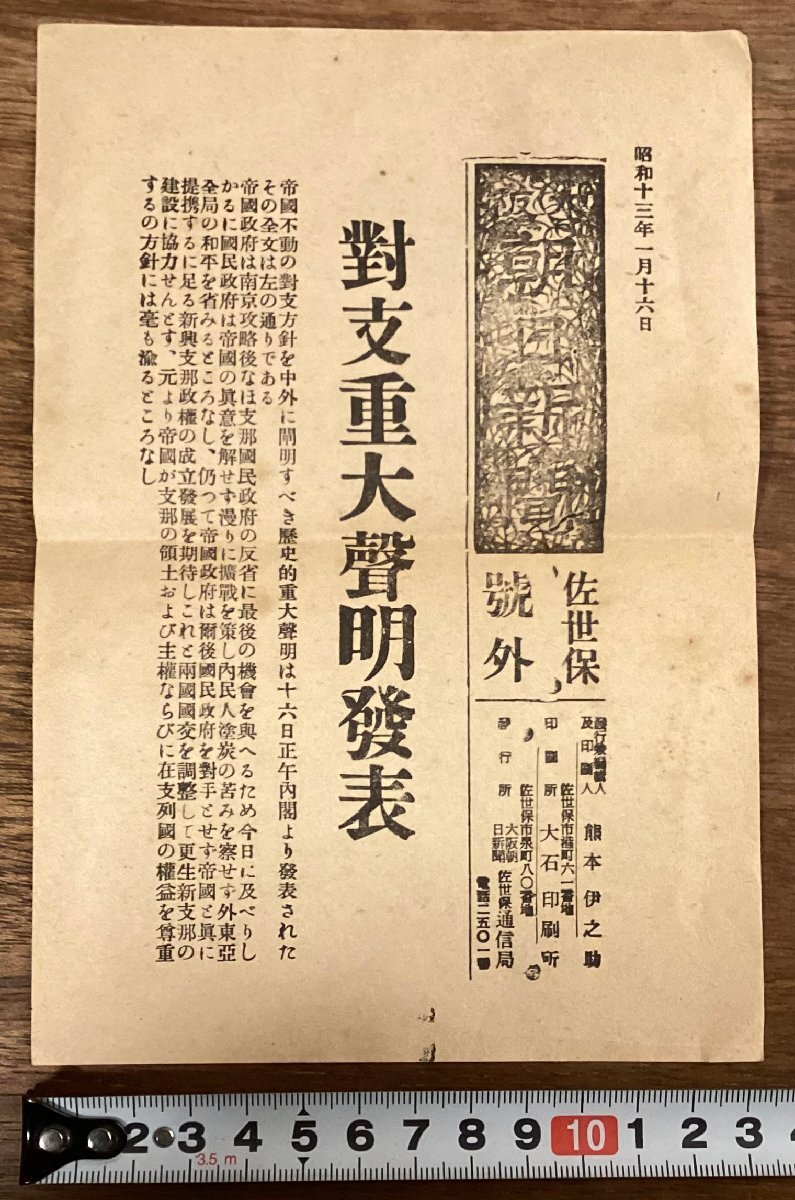 昭和十三年一月十六日
朝日新聞
佐世保
號外
發行兼編輯人
及印刷人
熊本伊之助
佐世保市港町六一番地
印刷所 大石印刷所
佐世保市泉町八〇番地
發行所 大阪朝日新聞 佐世保通信局
電話二五〇一番
對支重大聲明發表
帝國不動の對支方針を中外に闡明すべき歷史的重大聲明は十六日正午內閣より發表された
その全文は左の通りである
帝國政府は南京攻略後なほ支那國民政府の反省に最後の機會を與へるため今日に及べりし
かるに國民政府は帝國の眞意を解せず漫りに擴戰を策し內民人塗炭の苦みを察せず外東亞
全局の和平を省みるところなし、仍つて帝國政府は爾後國民政府を對手とせず帝國と眞に
提携するに足る新興支那政權の成立發展を期待しこれと兩國國交を調整して更生新支那の
建設に協力せんとす、元より帝國が支那の領土および主權ならびに在支列國の權益を尊重
するの方針には毫も渝るところなし
2 3 4 5 6 7 8 9 10 1 2 3 4
3.5 m